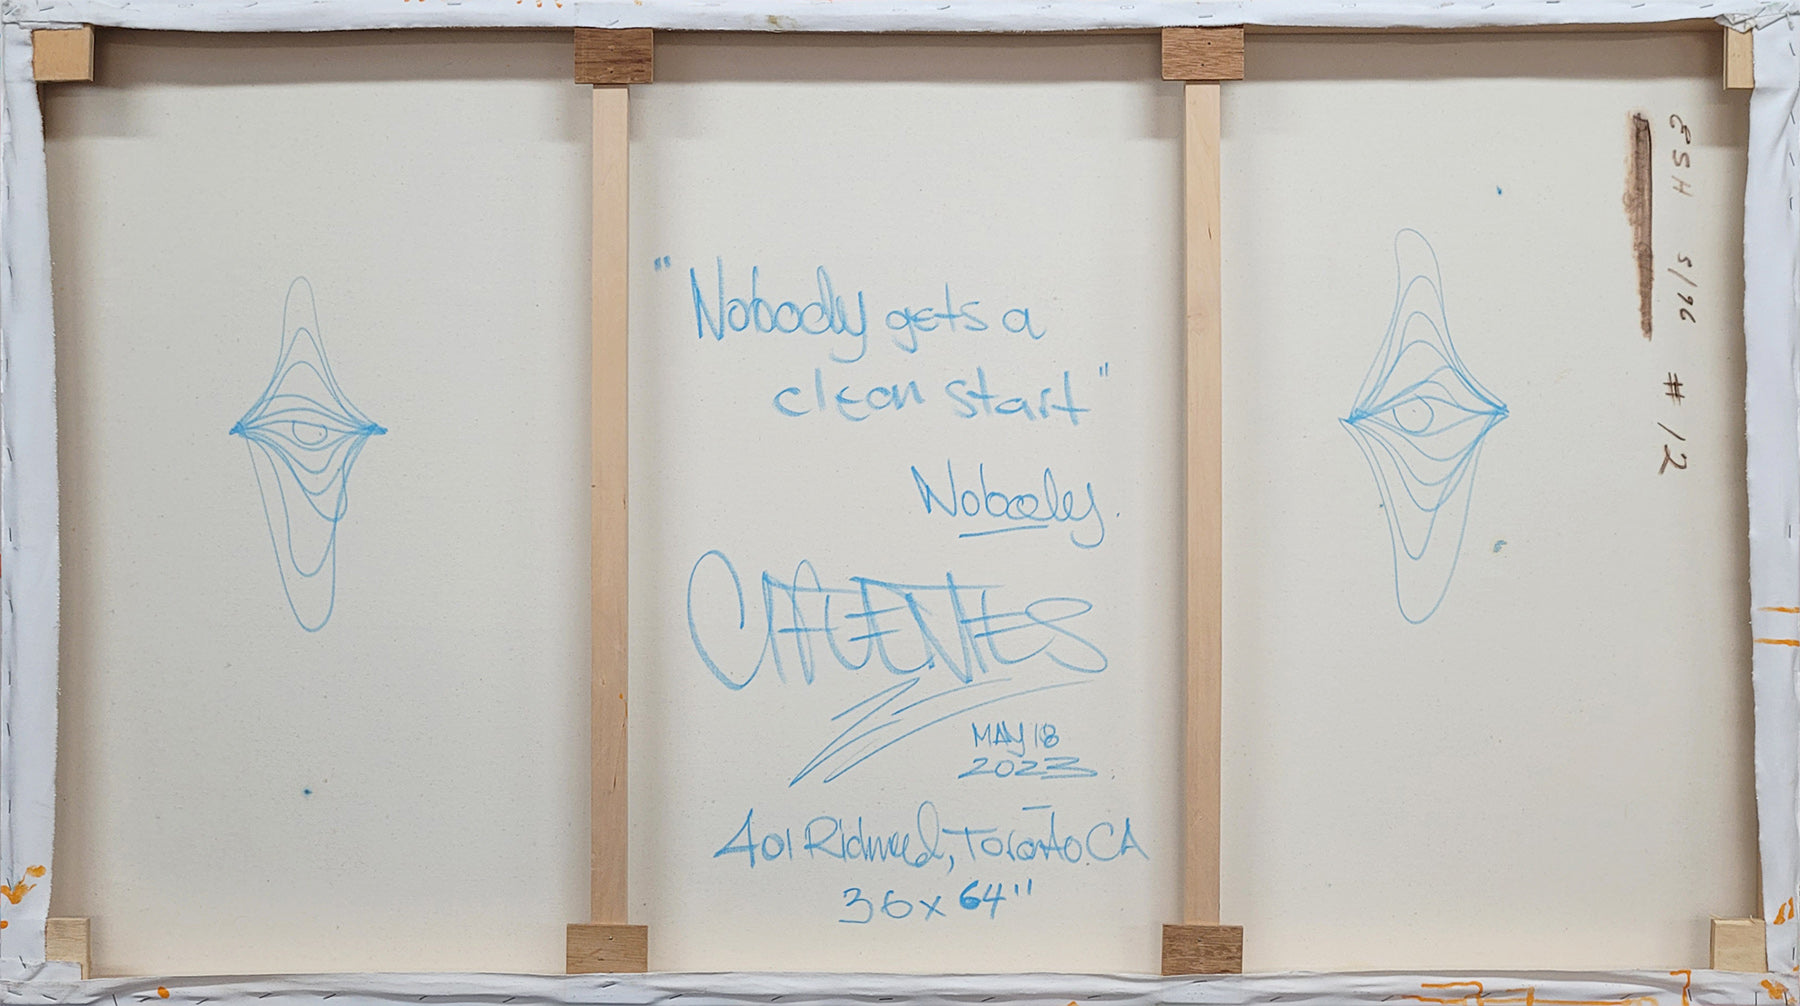 "Nobody gets a
clean start"
Nobody.
CIFUENTES
MAY 18
2023
401 Richmond, Toronto. CA
36 x 64"
# 12